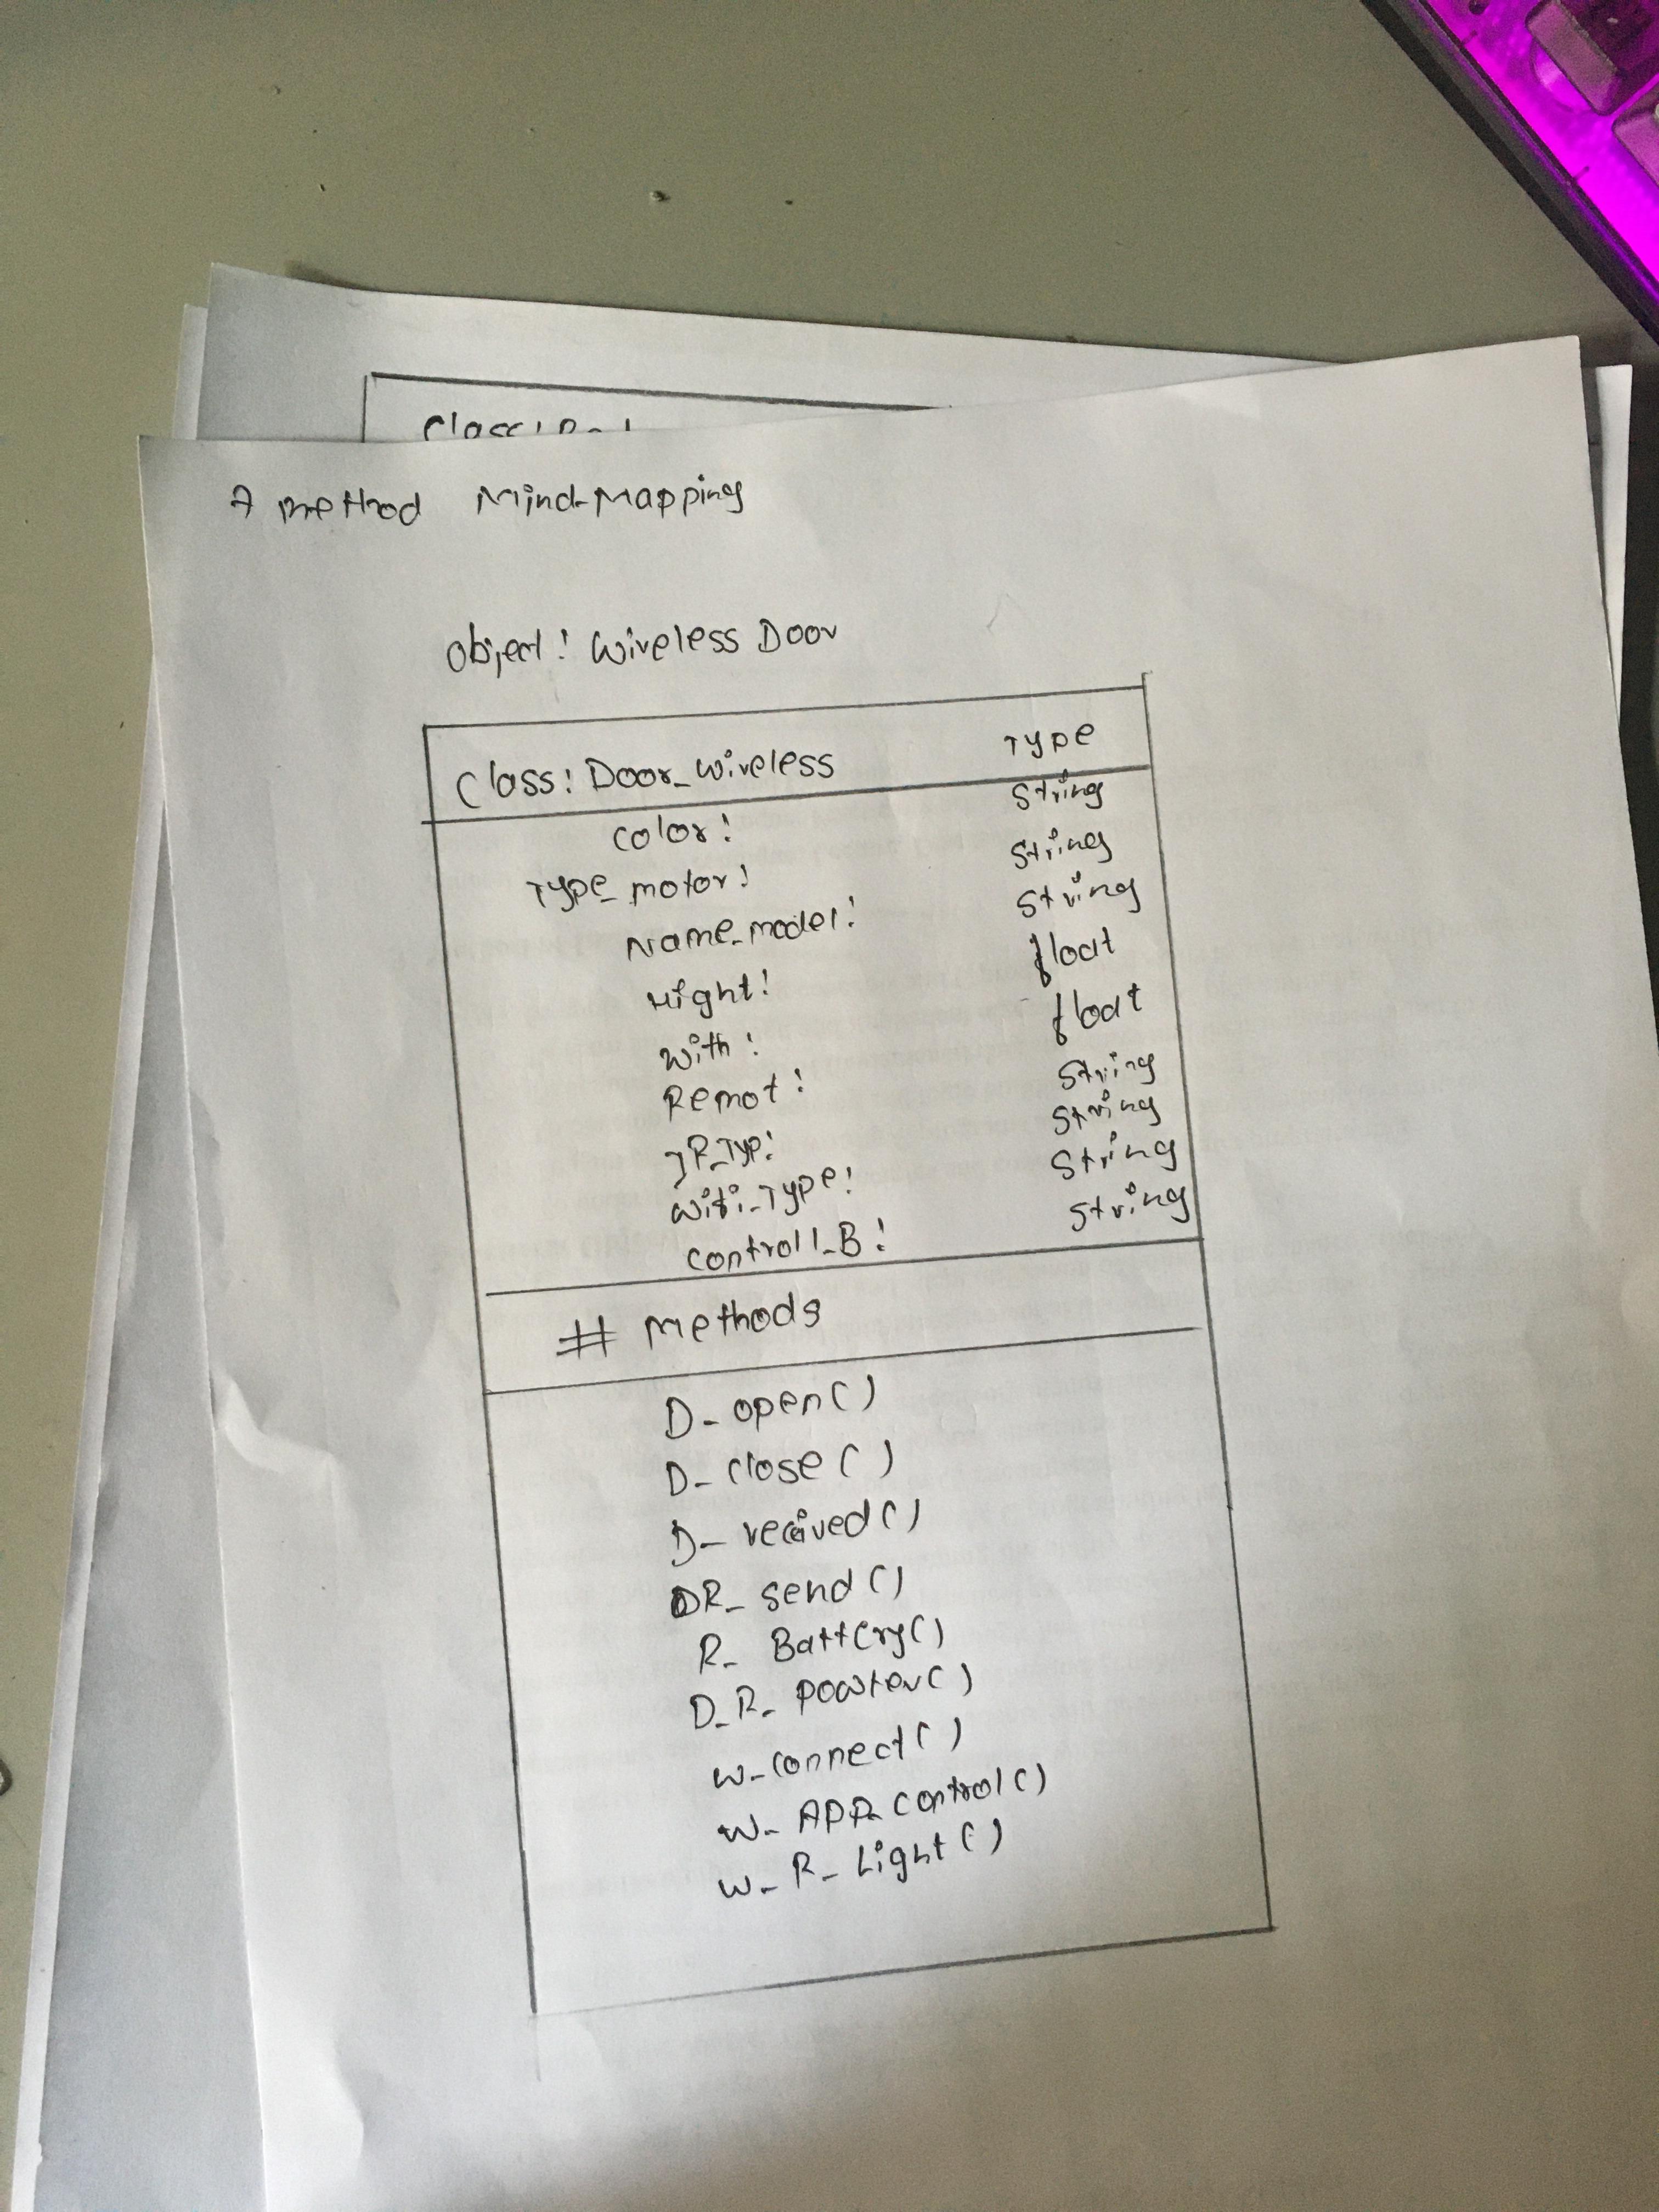 A method Mind-Mapping
Object: Wireless Door
Class: Door_Wireless Type
Color: String
Type_motor: String
Name_model: String
Hight: float
With: float
Remot: String
IR_Typ: String
Wifi_Type: String
Controll_B: String
# Methods
D_open()
D_close()
D_recived()
DR_send()
R_Battery()
D_R_powter()
W_Connect()
W_APP_Control()
W_R_Light()